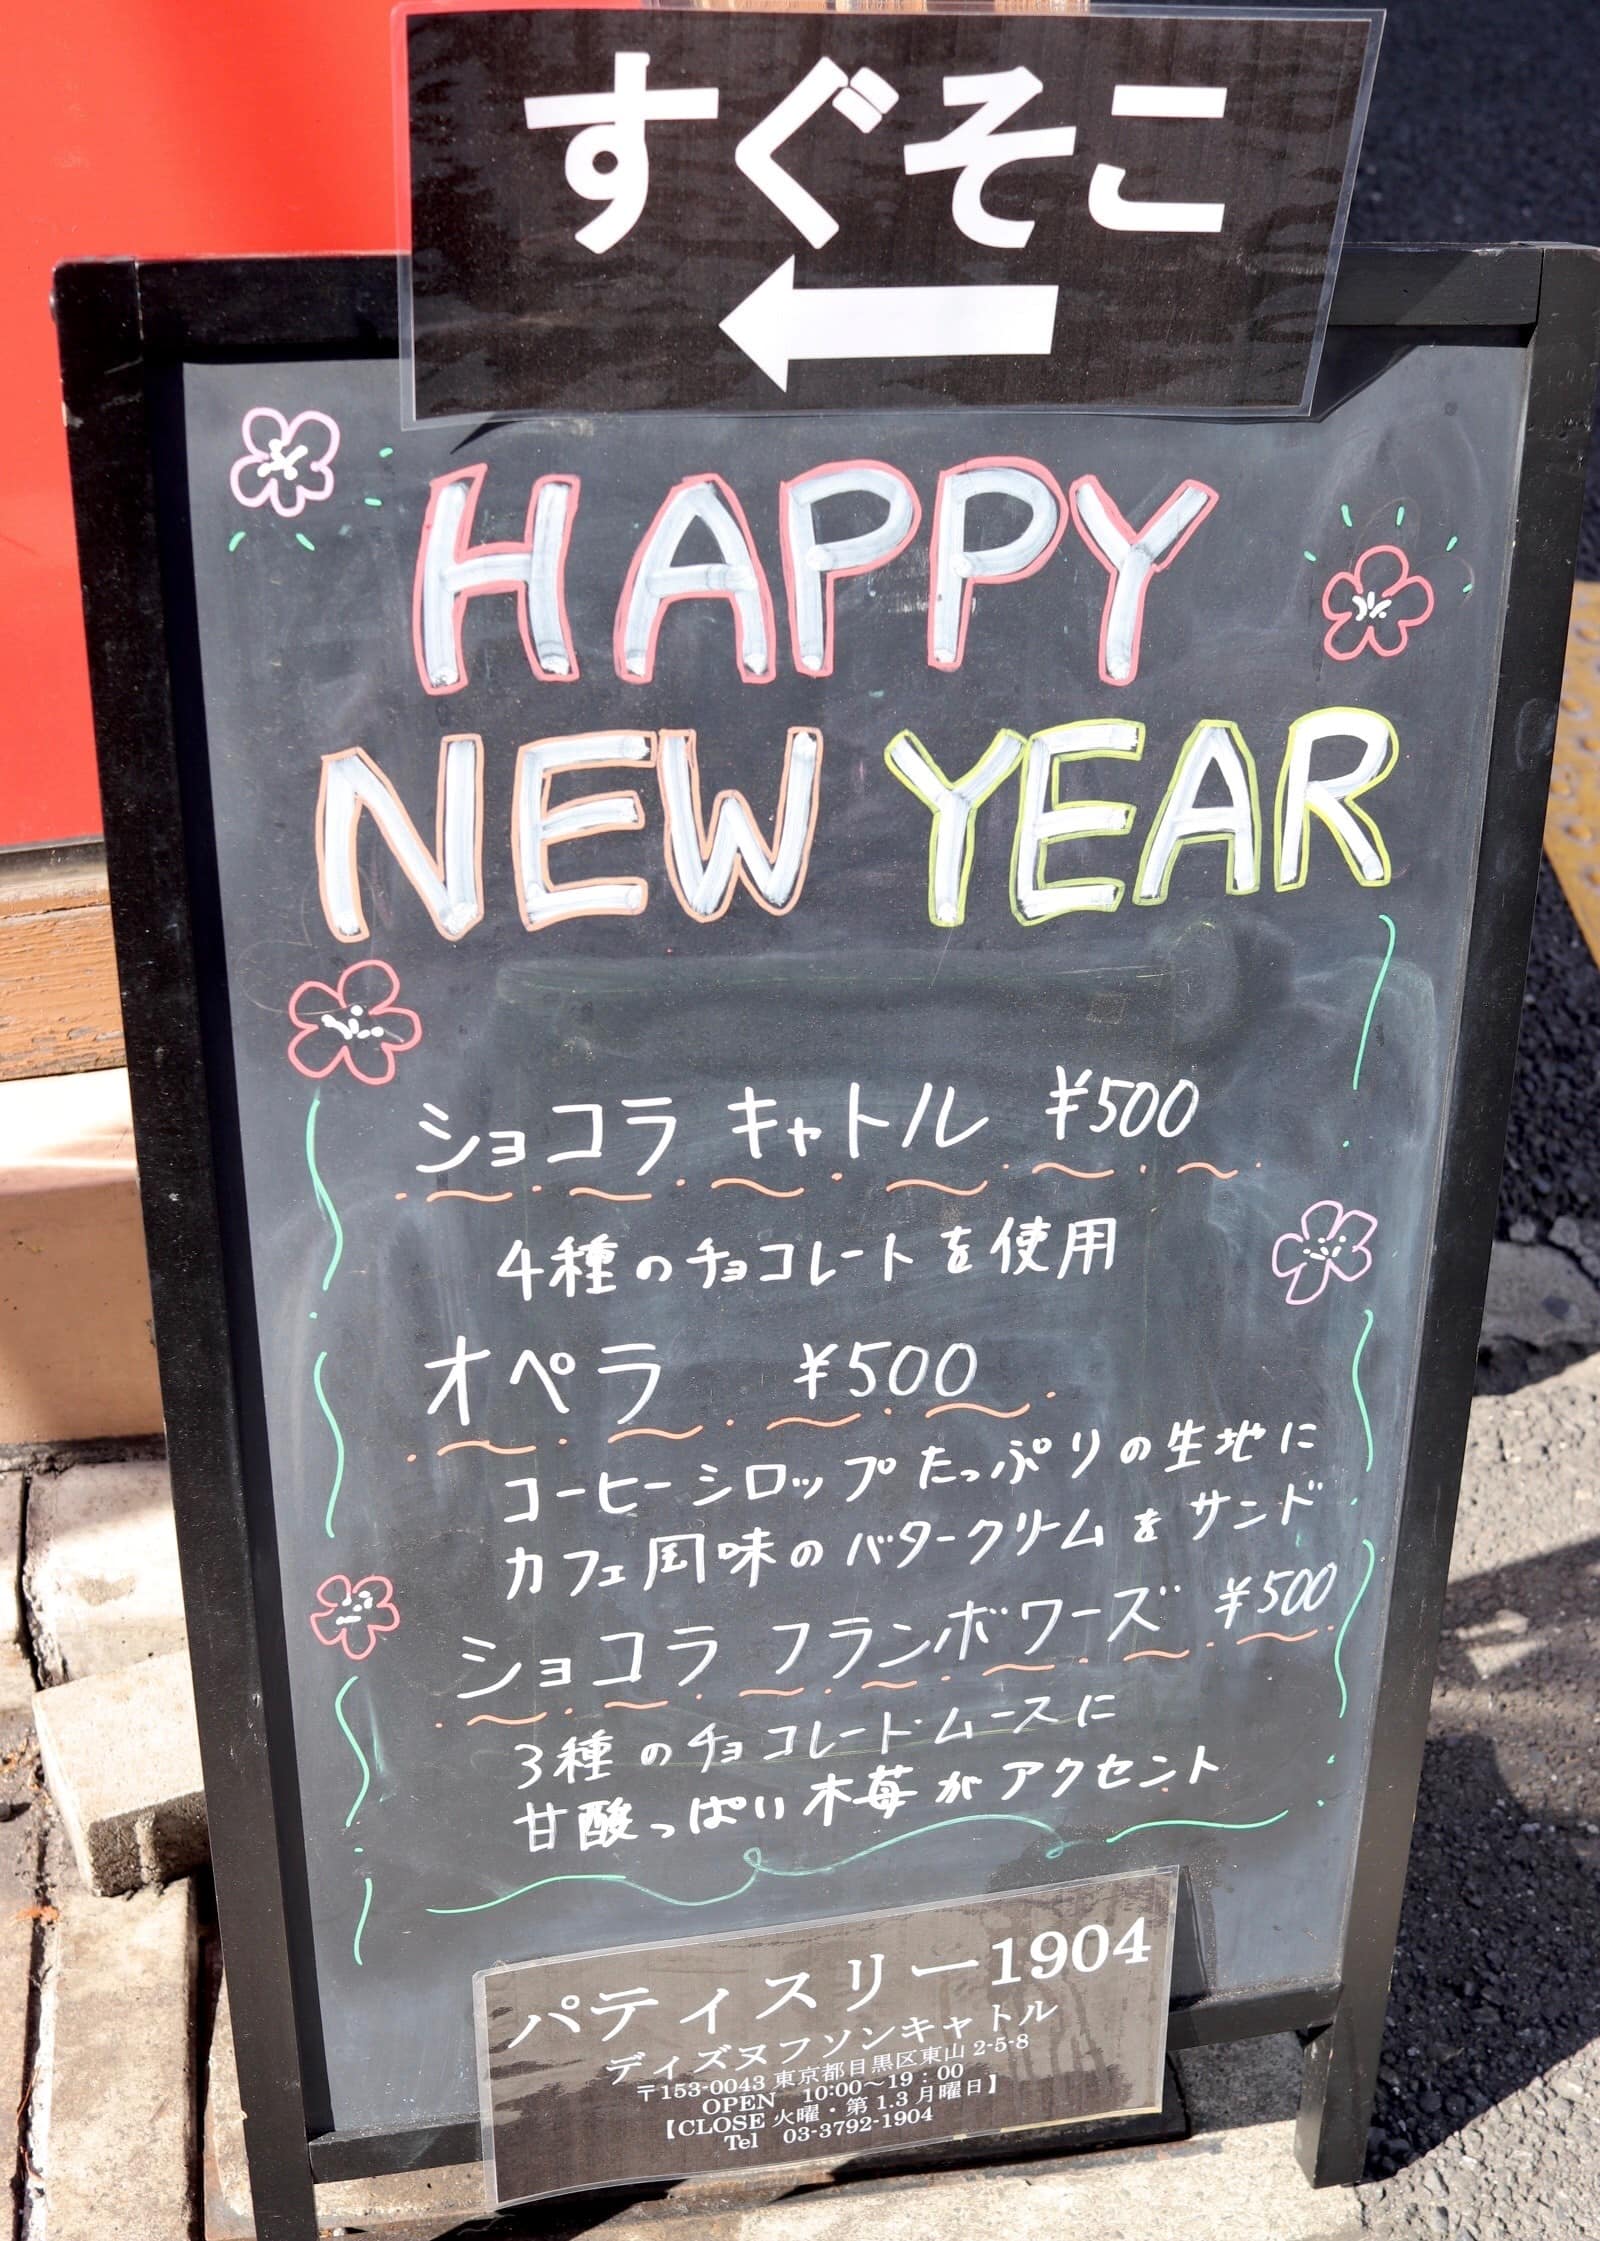 すぐそこ
HAPPY
NEW YEAR
ショコラ キャトル ¥500
4種のチョコレートを使用
オペラ ¥500
コーヒーシロップたっぷりの生地に
カフェ風味のバタークリームをサンド
ショコラ フランボワーズ ¥500
3種のチョコレートムースに
甘酸っぱい木苺がアクセント
パティスリー1904
ディズヌフソンキャトル
〒153-0043 東京都目黒区東山 2-5-8
OPEN 10:00~19:00
【CLOSE 火曜・第 1.3 月曜日】
Tel 03-3792-1904